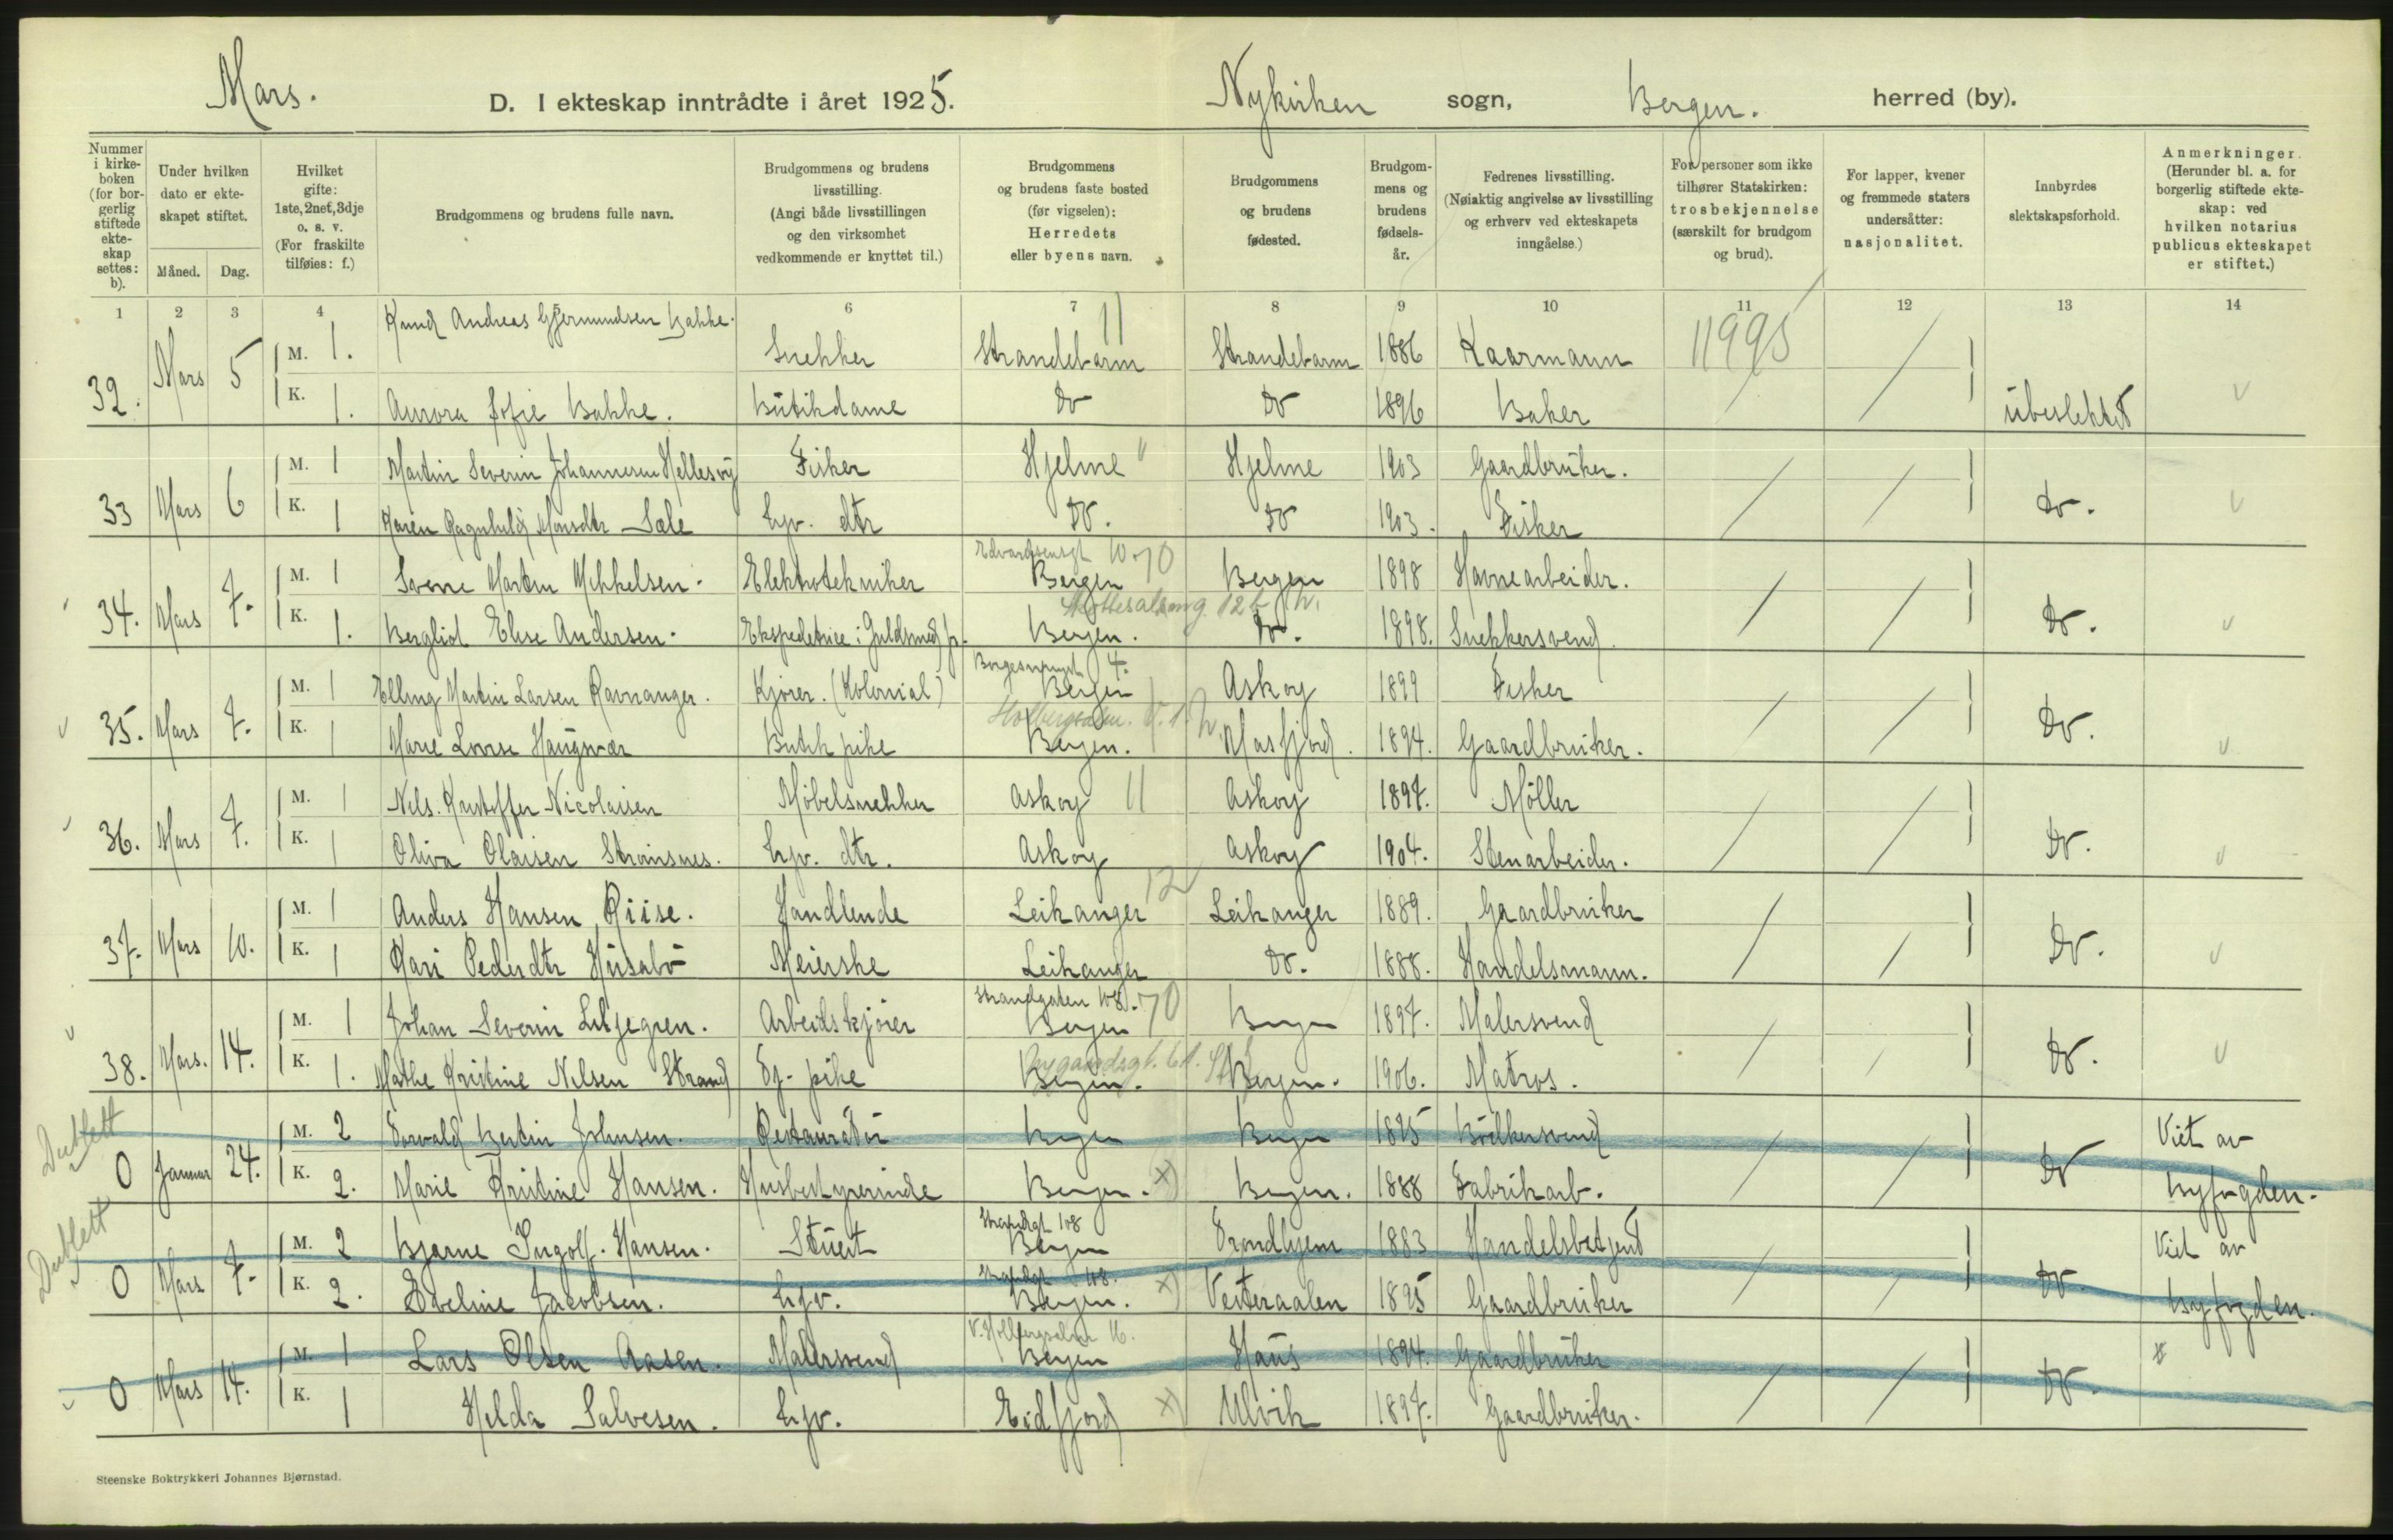 Mars.
D. I ekteskap inntrådte i året 1925.
Nykirken sogn, Bergen. herred (by).
Nummer i kirkeboken (for borgerlig stiftede ekteskap settes: b).
Under hvilken dato er ekteskapet stiftet.
Måned. Dag.
Hvilket gifte: 1ste, 2net, 3dje o. s. v. (For fraskilte tilføies: f.)
Brudgommens og brudens fulle navn.
Brudgommens og brudens livsstilling. (Angi både livsstillingen og den virksomhet vedkommende er knyttet til.)
Brudgommens og brudens faste bosted (før vigselen): Herredets eller byens navn.
Brudgommens og brudens fødested.
Brudgommens og brudens fødselsår.
Fedrenes livsstilling. (Nøiaktig angivelse av livsstilling og erhverv ved ekteskapets inngåelse.)
For personer som ikke tilhører Statskirken: trosbekjennelse (særskilt for brudgom og brud).
For lapper, kvener og fremmede staters undersåtter: nasjonalitet.
Innbyrdes slektskapsforhold.
Anmerkninger. (Herunder bl. a. for borgerlig stiftede ekteskap: ved hvilken notarius publicus ekteskapet er stiftet.)
1 2 3 4 5 6 7 8 9 10 11 12 13 14
32. Mars 5 M. 1. Knud Andreas Gjermundsen Bakke. Snekker Strandebarm 11 Strandebarm 1886 Kaarmann 11995
K. 1. Aurora Sofie Bakke. Butikdame do do 1896 Baker ubeslektet
33 Mars 6 M. 1 Martin Severin Johannesen Hellesøy Fisker Hjelme " Hjelme 1903 Gaardbruker.
K. 1 Karen Ragnhild Monsdtr Sæle hjv. dtr do. do 1903. Fisker do.
Edvardsensgt 10. 70
34. Mars 7. M. 1 Sverre Martin Mikkelsen. Elektrotekniker Bergen Bergen 1898 Havnearbeider.
12 b
K. 1. Bergliot Elise Andersen. Ekspeditrice i Guldsmedf. Bergen. do. 1898. Snekkersvend do.
4.
35. Mars 7. M. 1 Elling Martin Larsen Ravnanger. Kjører. (Kolonial) Bergen Askøy 1899 Fisker
K. 1 Marie Lovise Haugsvær Butikpike Bergen. Masfjord. 1894. Gaardbruker. do.
36. Mars 7. M. 1 Nils Kristoffer Nicolaisen Møbelsnekker Askøy 11 Askøy 1897. Møller
K. 1 Oliva Olaisen Strømsnes. hjv. dtr. Askøy Askøy 1904. Stenarbeider. do.
37. Mars 10. M. 1 Anders Hansen Riise. Handlende Leikanger 12 Leikanger 1889. Gaardbruker
K. 1 Kari Pedersdtr Husabø Meierske Leikanger do. 1888. Handelsmann. do.
Strandgaten 108. 70
38. Mars. 14. M. 1 Johan Severin Liljegren. Arbeidskjører Bergen Bergen 1897. Malersvend
Nygaardsgt.
K. 1. Mathe Kristine Nilsen Strand Tj. pike Bergen. Bergen. 1906. Matros. do.
Dublett
0 Januar 24. M. 2 Torvald Bertin Johnsen. Restauratør Bergen Bergen 1885 Bødkersvend Viet av
K. 2. Marie Kristine Hansen. Husbestyrerinde Bergen. x) Bergen. 1888 Fabrikarb. do byfogden.
Dublett
Strandgt 108
0 Mars 7. M. 2 Bjarne Ingolf Hansen. Stuert Bergen Trondhjem 1883 Handelsbetjent Viet av
Strandgt 108.
K. 2. Eveline Jacobsen. hjv. Bergen. x) Vesteraalen 1895 Gaardbruker do. byfogden.
V. Holbergsalm 16.
0 Mars 14. M. 1 Lars Olsen Aasen. Malersvend Bergen Haus 1894. Gaardbruker
K. 1 Hilda Salvesen. hjv. Eidfjord x) Ulvik 1897. Gaardbruker. do.
Steenske Boktrykkeri Johannes Bjørnstad.